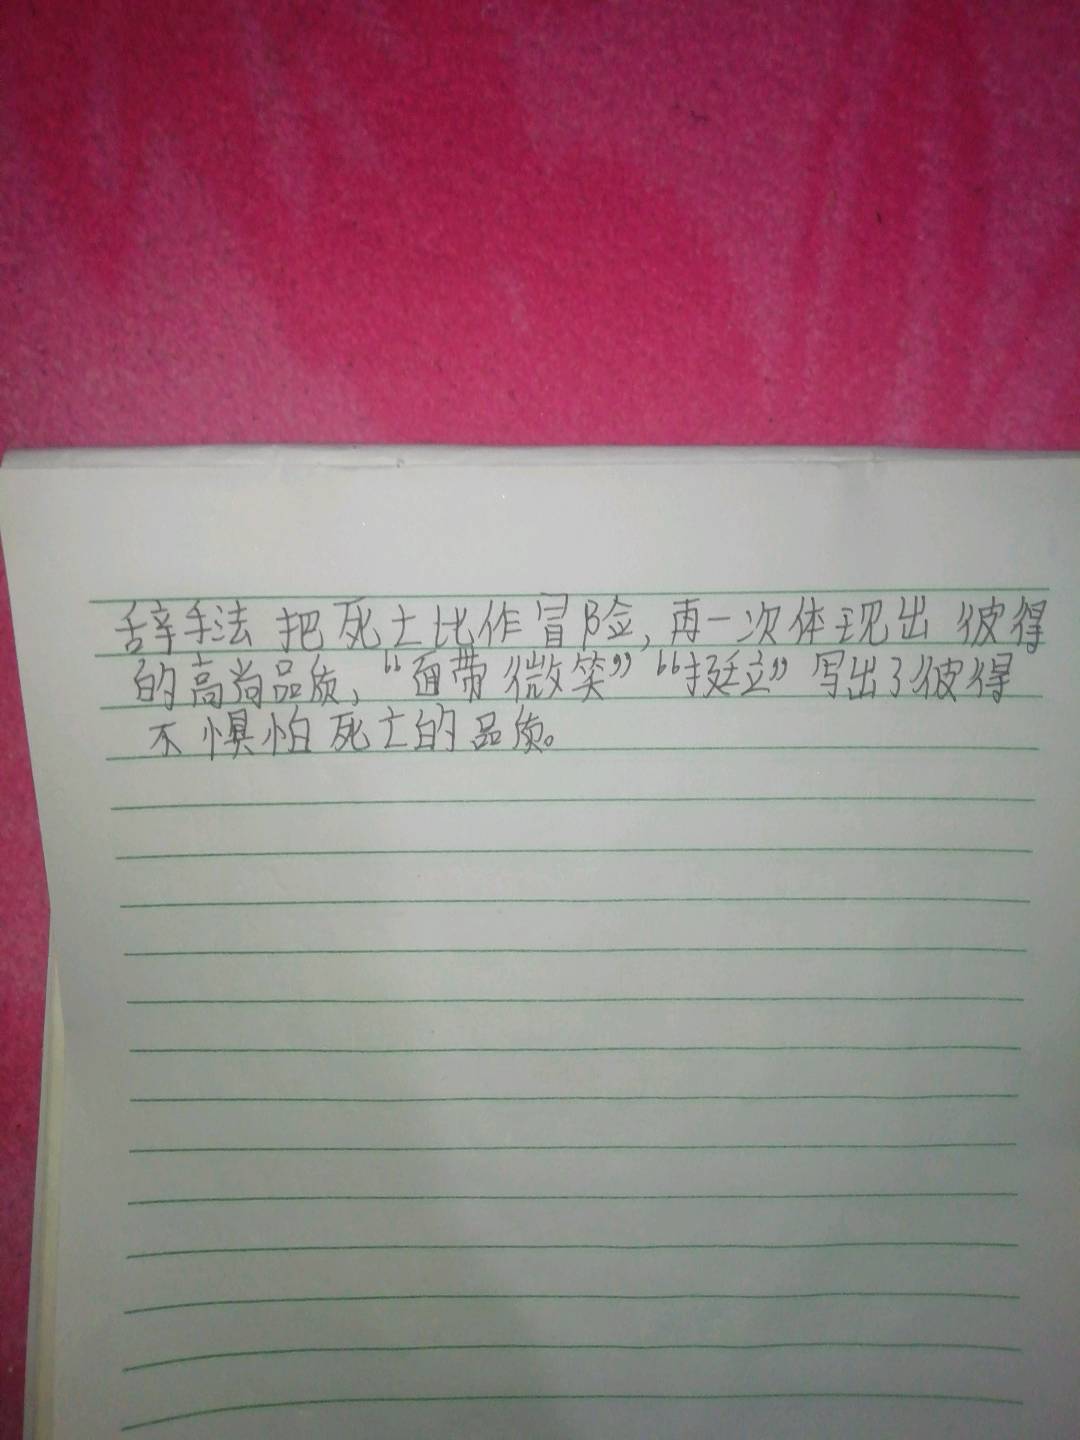 辞手法把死亡比作冒险,再一次体现出彼得
的高尚品质,“面带微笑”“挺立”写出了彼得
不惧怕死亡的品质。